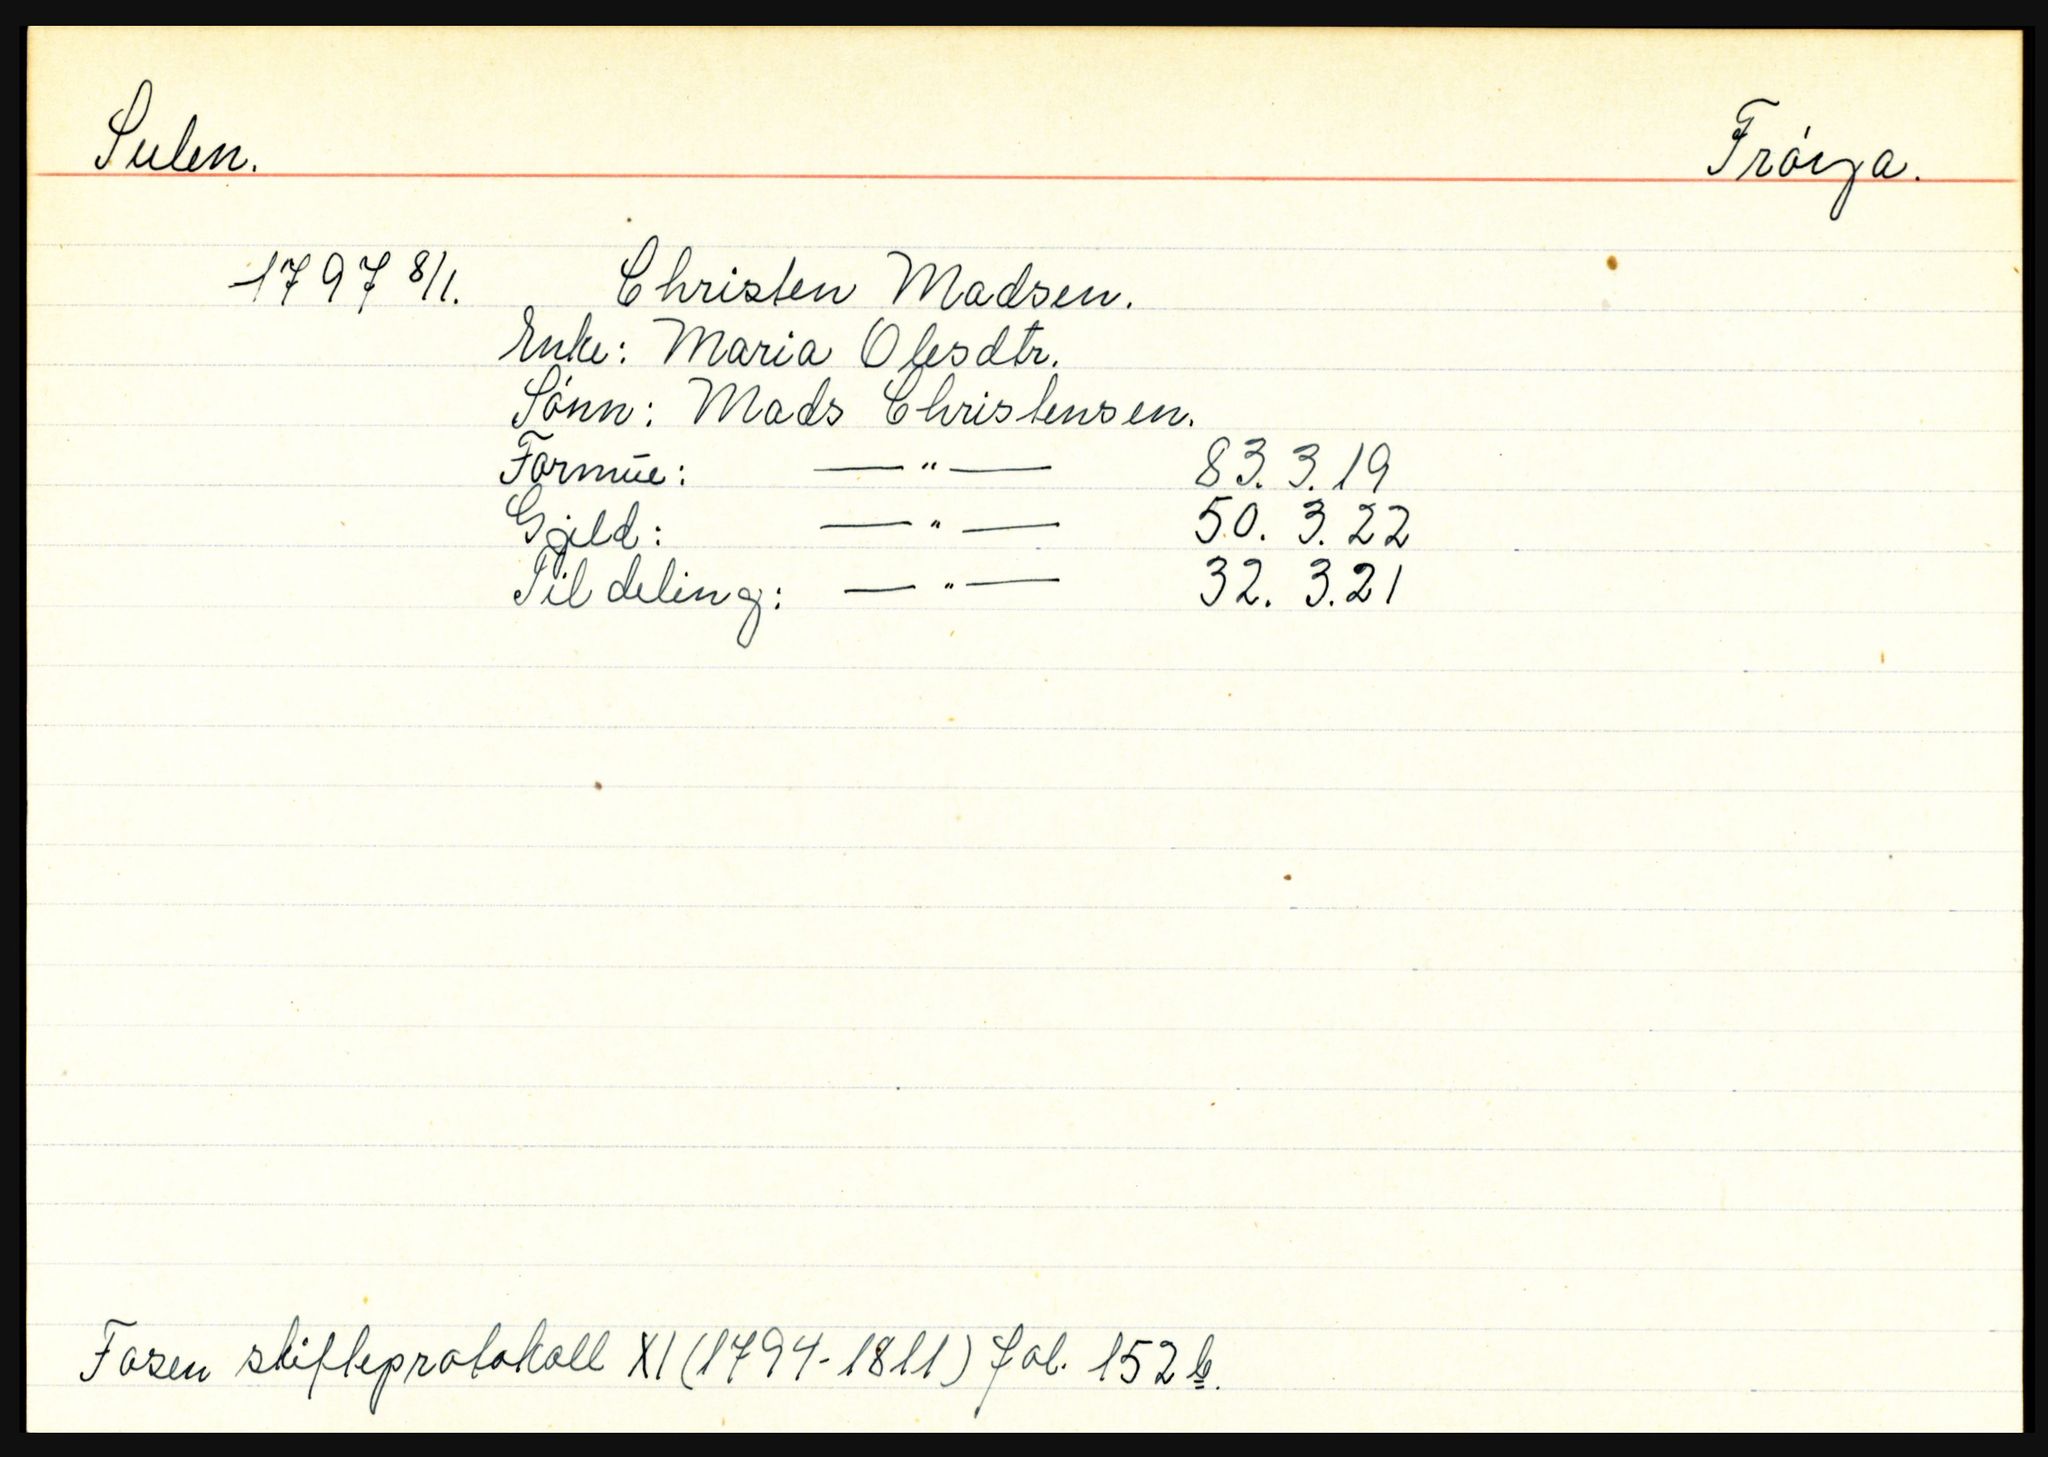 Sulen. Frøya.
1797 8/1. Christen Madsen.
Enke: Maria Olesdtr.
Sønn: Mads Christensen.
Formue: — " — 83. 3. 19
Gjeld: — " — 50. 3. 22
Til deling: — " — 32. 3. 21
Fosen skifteprotokoll XI (1794-1811) fol. 152 b.